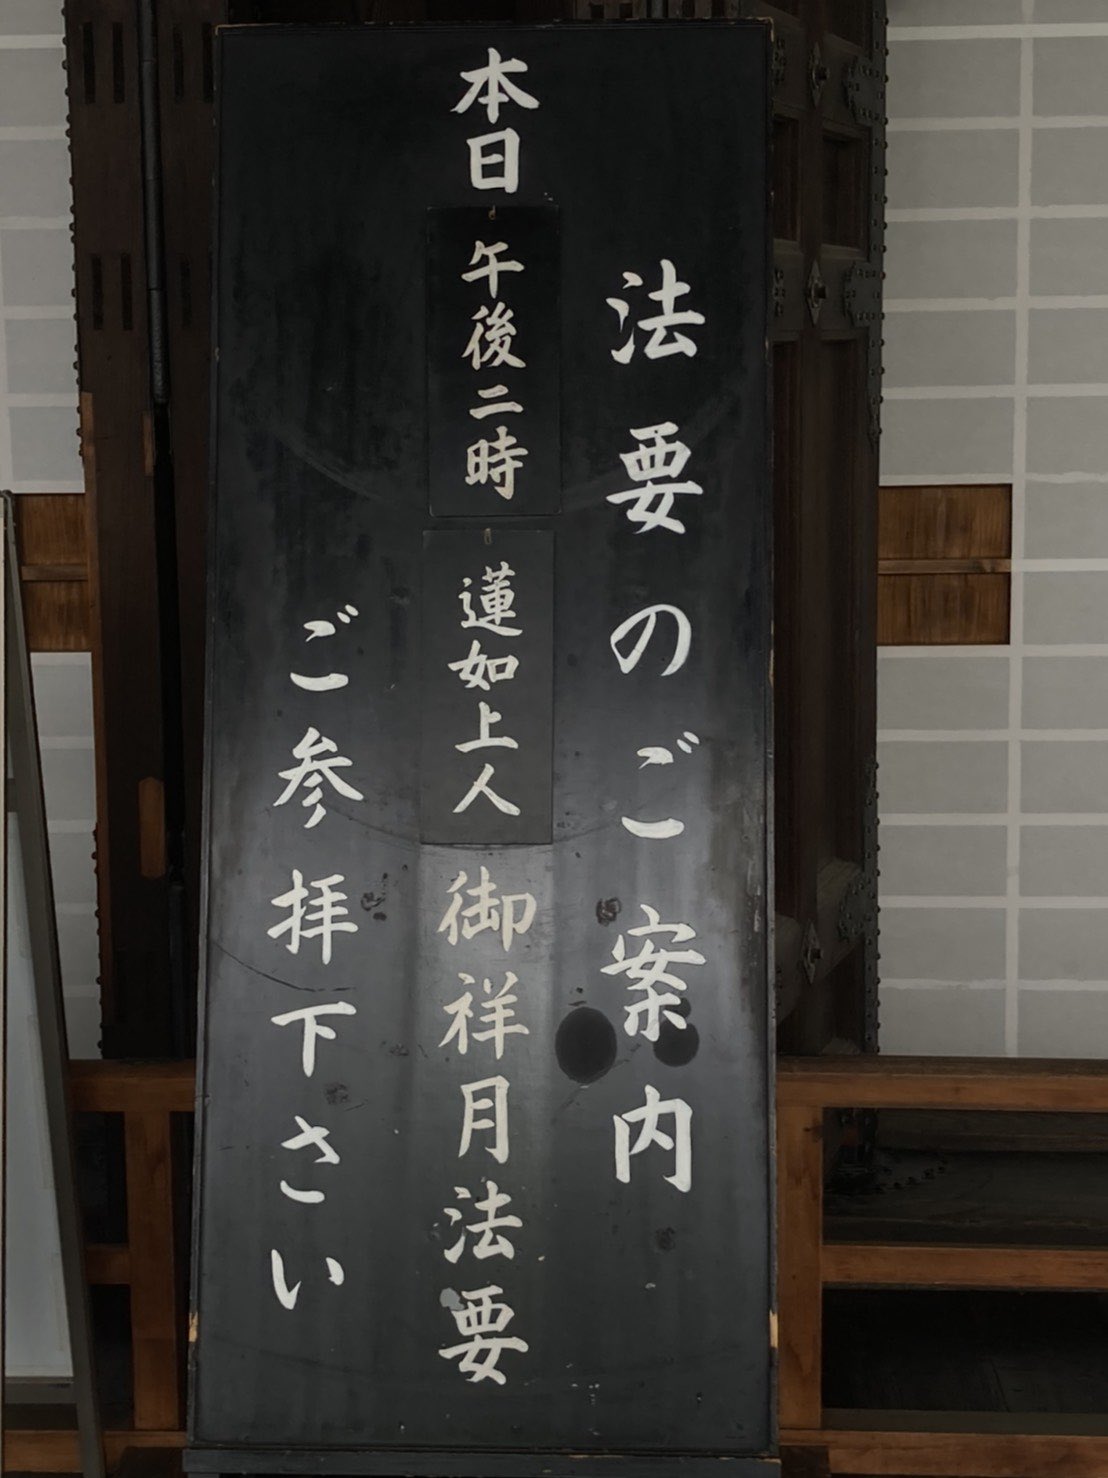 法要のご案内
本日午後二時蓮如上人御祥月法要
ご参拝下さい